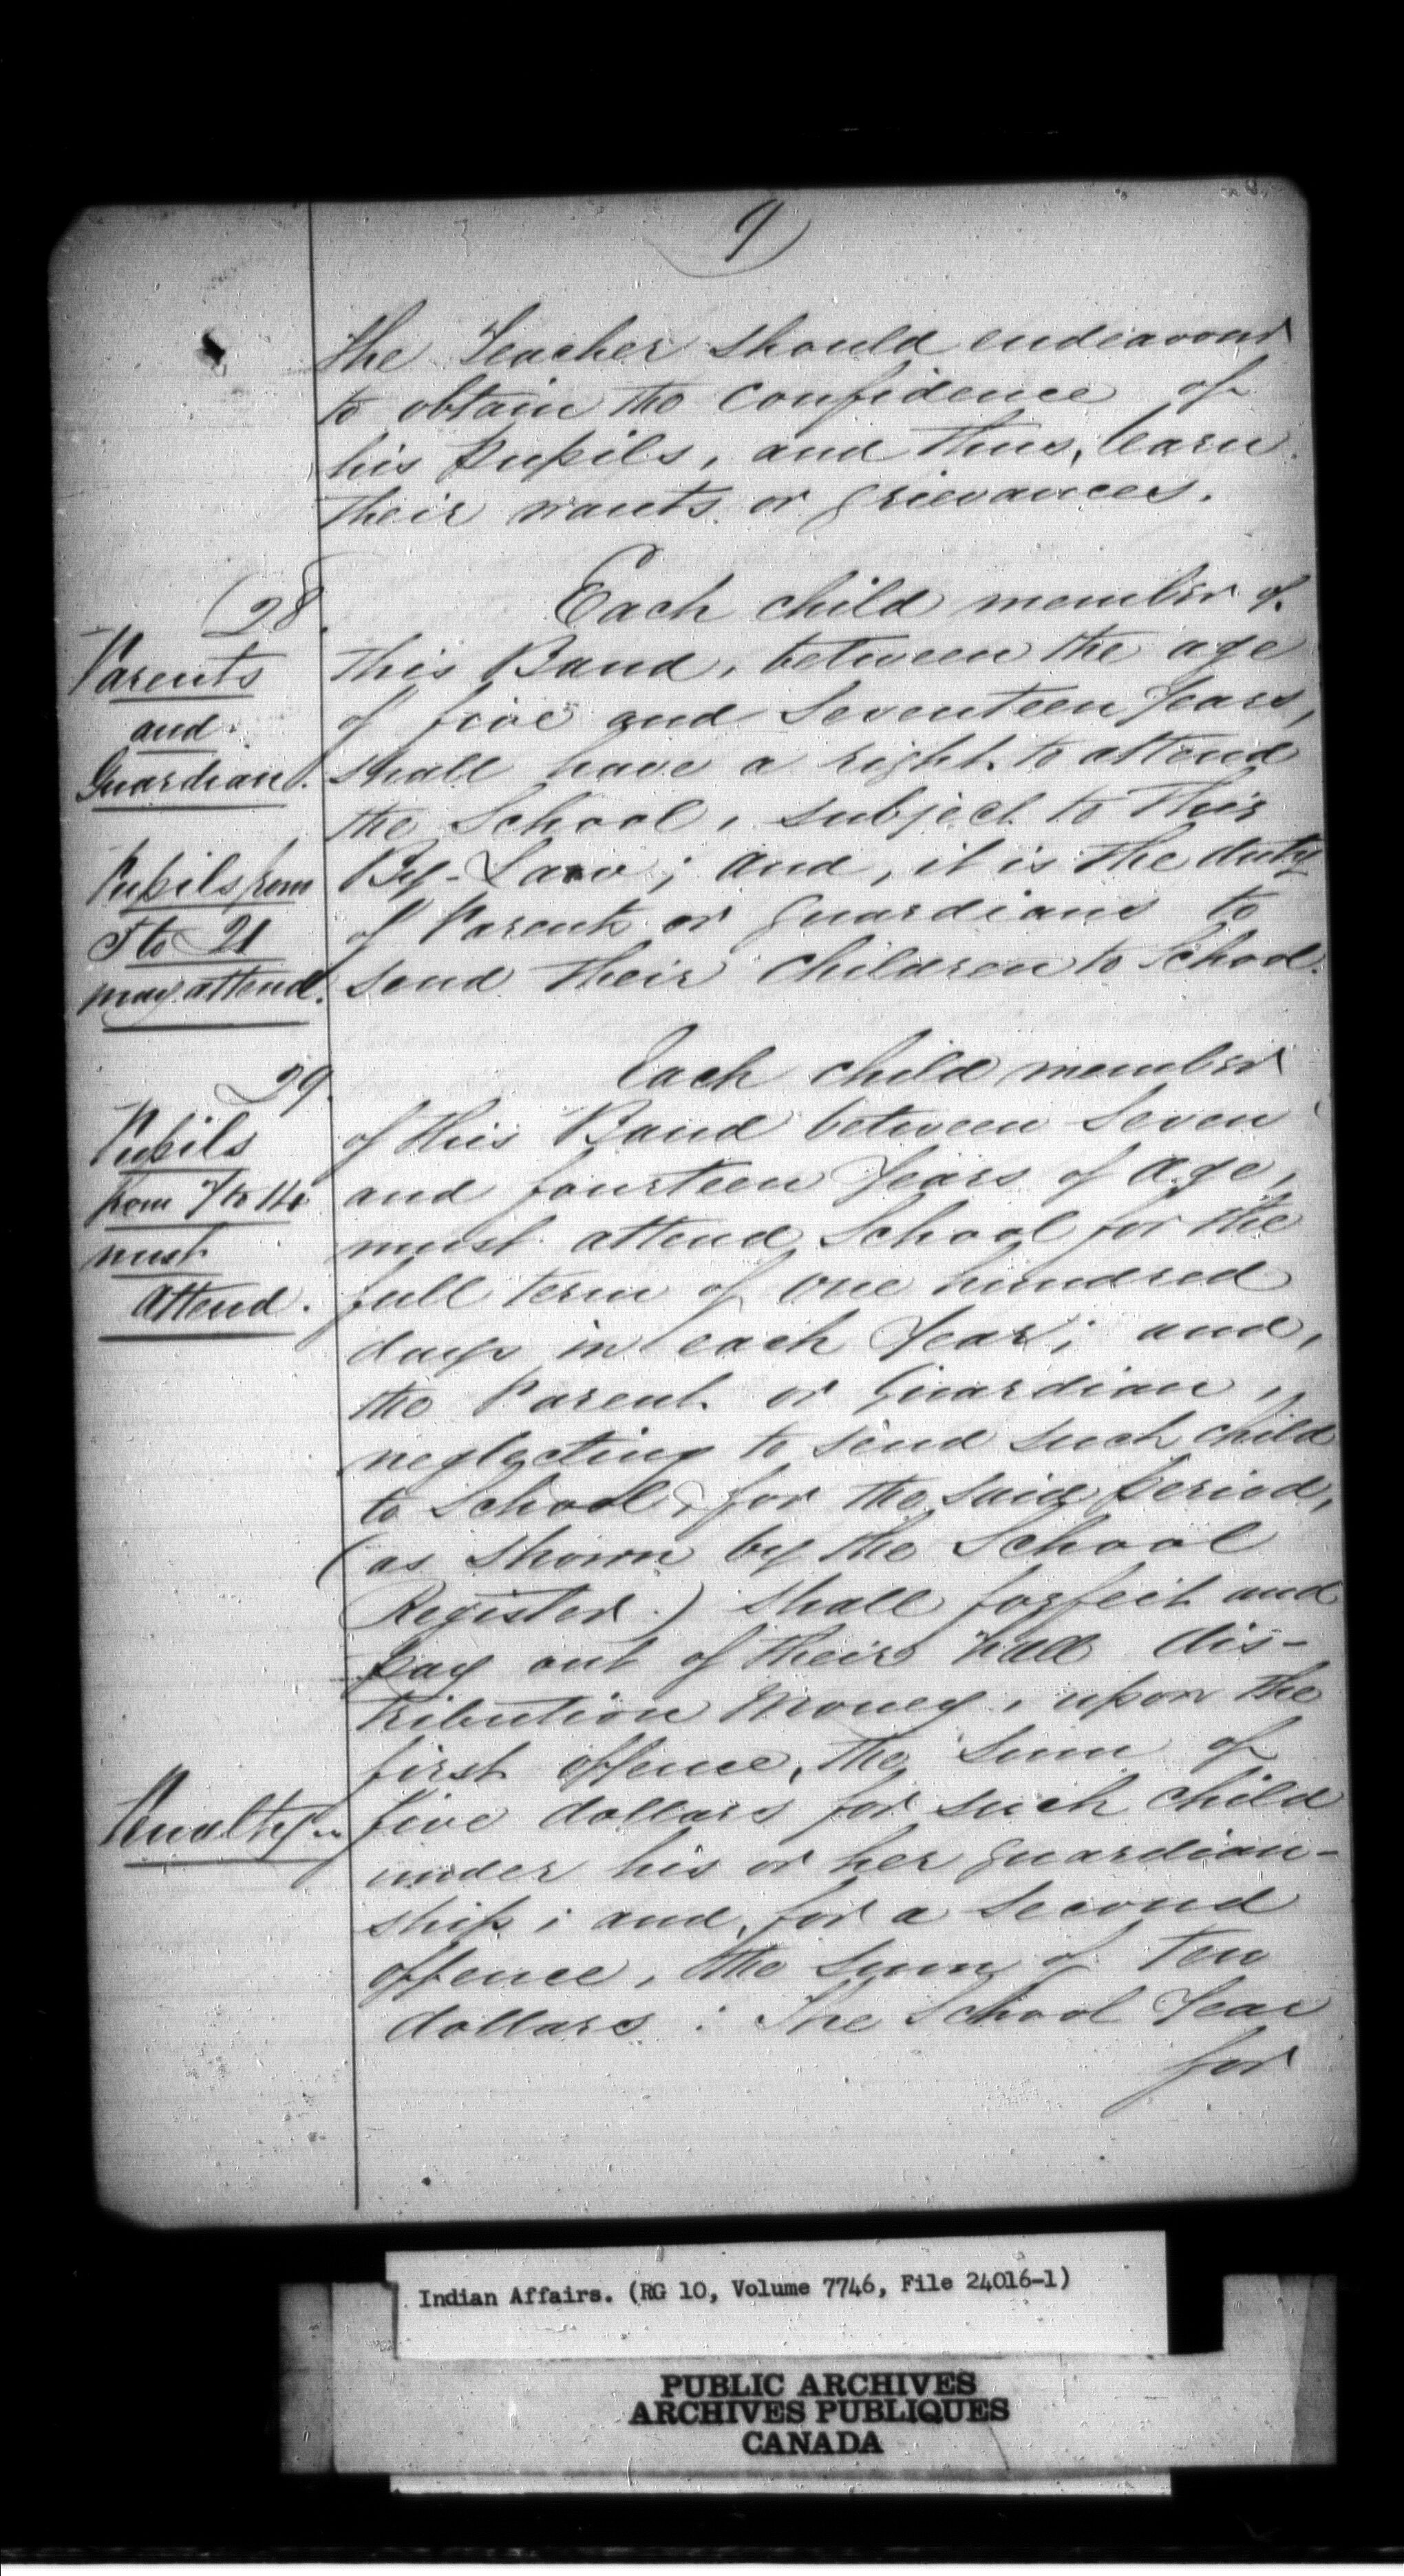 9
the Teacher should endeavour
to obtain the confidence of
his pupils, and thus, learn
their wants or grievances.
28.
Parents
and
Guardian.
Each child member of
this Band, between the age
of five and Seventeen Years,
shall have a right to attend
the School, subject to this
By-Law; and, it is the duty
of Parents or Guardians to
send their Children to School.
Pupils from
5 to 21
may attend.
29.
Pupils
from 7 to 14
must
attend.
Each child member
of this Band between Seven
and fourteen Years of age,
must attend School for the
full term of one hundred
days in each Year; and,
the Parent or Guardian,
neglecting to send such child
to School, for the said period,
(as shown by the School
Register.) shall forfeit and
pay out of their distribution
Money, upon the
first offence, the Sum of
Penalty
five dollars for such child
under his or her guardian-
ship; and, for a Second
offence, the sum of Ten
dollars: The School Year
for
Indian Affairs. (RG 10, Volume 7746, File 24016-1)
PUBLIC ARCHIVES
ARCHIVES PUBLIQUES
CANADA